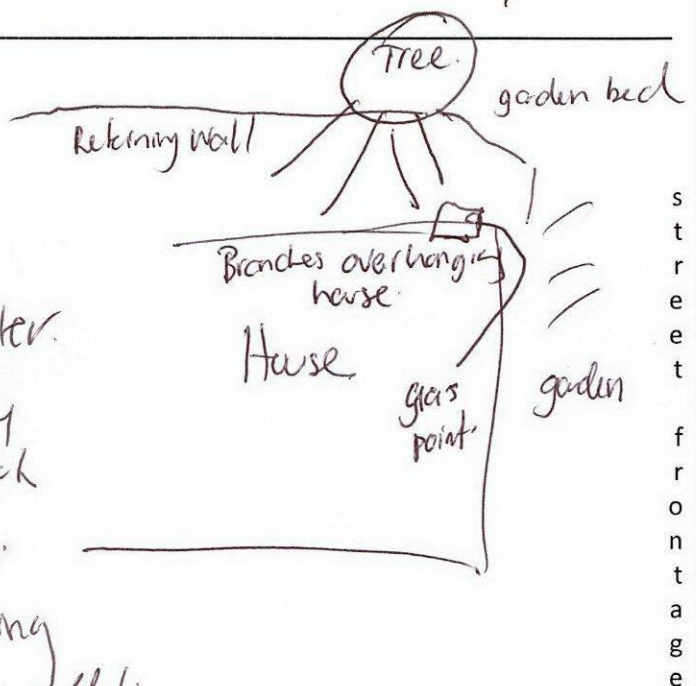 Tree.
garden bed
Retaining Wall
Branches overhanging
house.
House
gas
point.
garden
street frontage